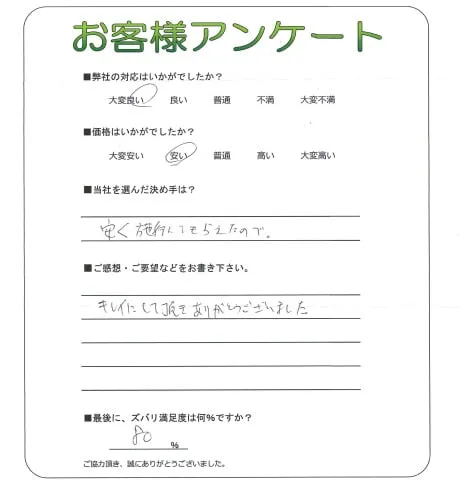 お客様アンケート
■弊社の対応はいかがでしたか？
大変良い 良い 普通 不満 大変不満
■価格はいかがでしたか？
大変安い 安い 普通 高い 大変高い
■当社を選んだ決め手は？
安く施行してもらえたので。
■ご感想・ご要望などをお書き下さい。
キレイにして頂きありがとうございました
■最後に、ズバリ満足度は何%ですか？
80 %
ご協力頂き、誠にありがとうございました。